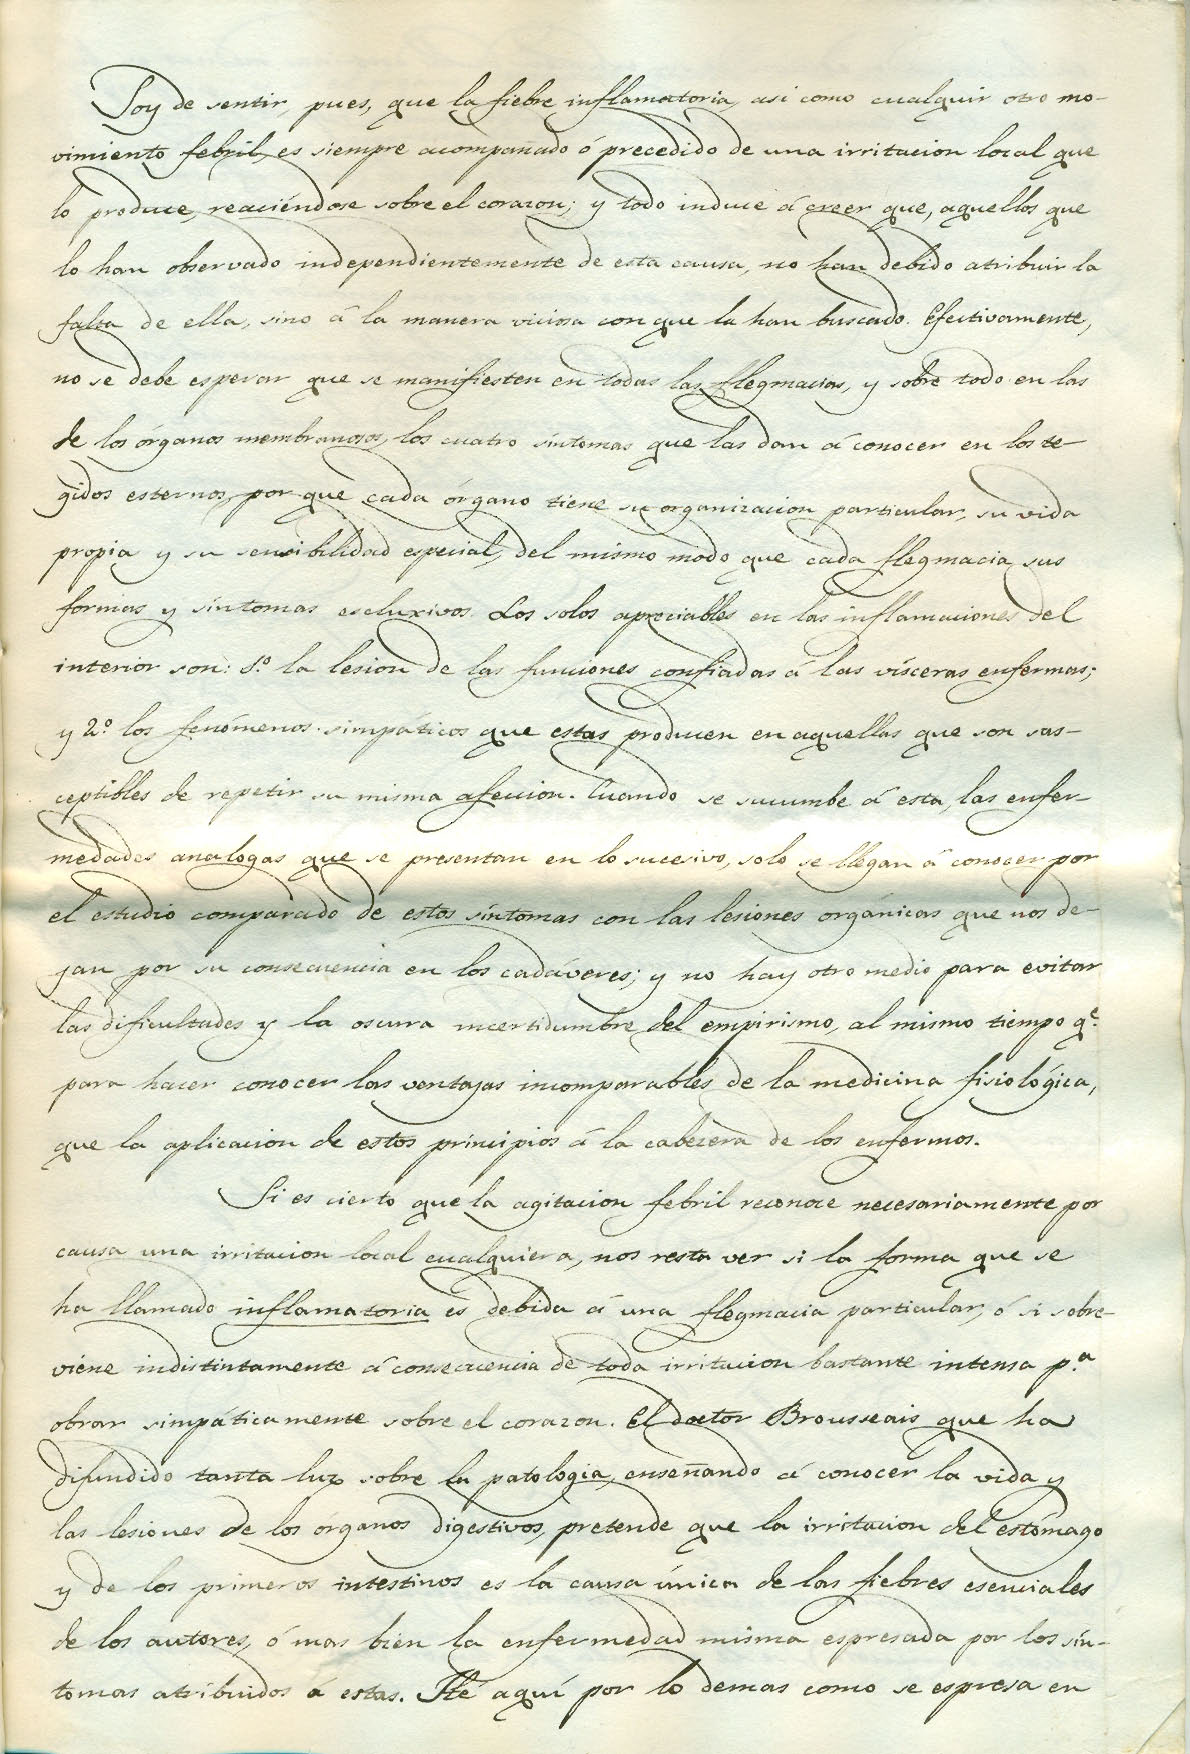 Soy de sentir, pues, que la fiebre inflamatoria, asi como cualquir otro mo-
vimiento febril, es siempre acompañado ó precedido de una irritacion local que
lo produce, reaciéndose sobre el corazon; y todo induce á creer que, aquellos que
lo han observado independientemente de esta causa, no han debido atribuir la
falta de ella, sino á la manera viciosa con que la han buscado. Efectivamente,
no se debe esperar que se manifiesten en todas las flegmacias, y sobre todo en las
de los órganos membranosos, los cuatro síntomas que las dan á conocer en los te-
gidos esternos, por que cada órgano tiene su organizacion particular, su vida
propia y su sensibilidad especial, del mismo modo que cada flegmacia sus
formas y síntomas escluxivos. Los solos apreciables en las inflamaciones del
interior son: 1.º la lesion de las funciones confiadas á las vísceras enfermas;
y 2.º los fenómenos simpáticos que estas producen en aquellas que son sus-
ceptibles de repetir su misma afeccion. Cuando se sucumbe á esta, las enfer-
medades analogas que se presentan en lo sucesivo, solo se llegan á conocer por
el estudio comparado de estos síntomas con las lesiones orgánicas que nos de-
jan por su consecuencia en los cadáveres; y no hay otro medio para evitar
las dificultades y la oscura incertidumbre del empirismo, al mismo tiempo q.e
para hacer conocer las ventajas incomparables de la medicina fisiológica,
que la aplicacion de estos principios á la cabecera de los enfermos.
Si es cierto que la agitacion febril reconoce necesariamente por
causa una irritacion local cualquiera, nos resta ver si la forma que se
ha llamado inflamatoria es debida á una flegmacia particular, ó si sobre-
viene indistintamente á consecuencia de toda irritacion bastante intensa p.a
obrar simpáticamente sobre el corazon. El doctor Brousseais que ha
difundido tanta luz sobre la patologia, enseñando á conocer la vida y
las lesiones de los organos digestivos, pretende que la irritacion del estómago
y de los primeros intestinos es la causa única de las fiebres esenciales
de los autores, ó mas bien la enfermedad misma espresada por los sín-
tomas atribuidos á estas. Hé aquí por lo demas como se espresa en